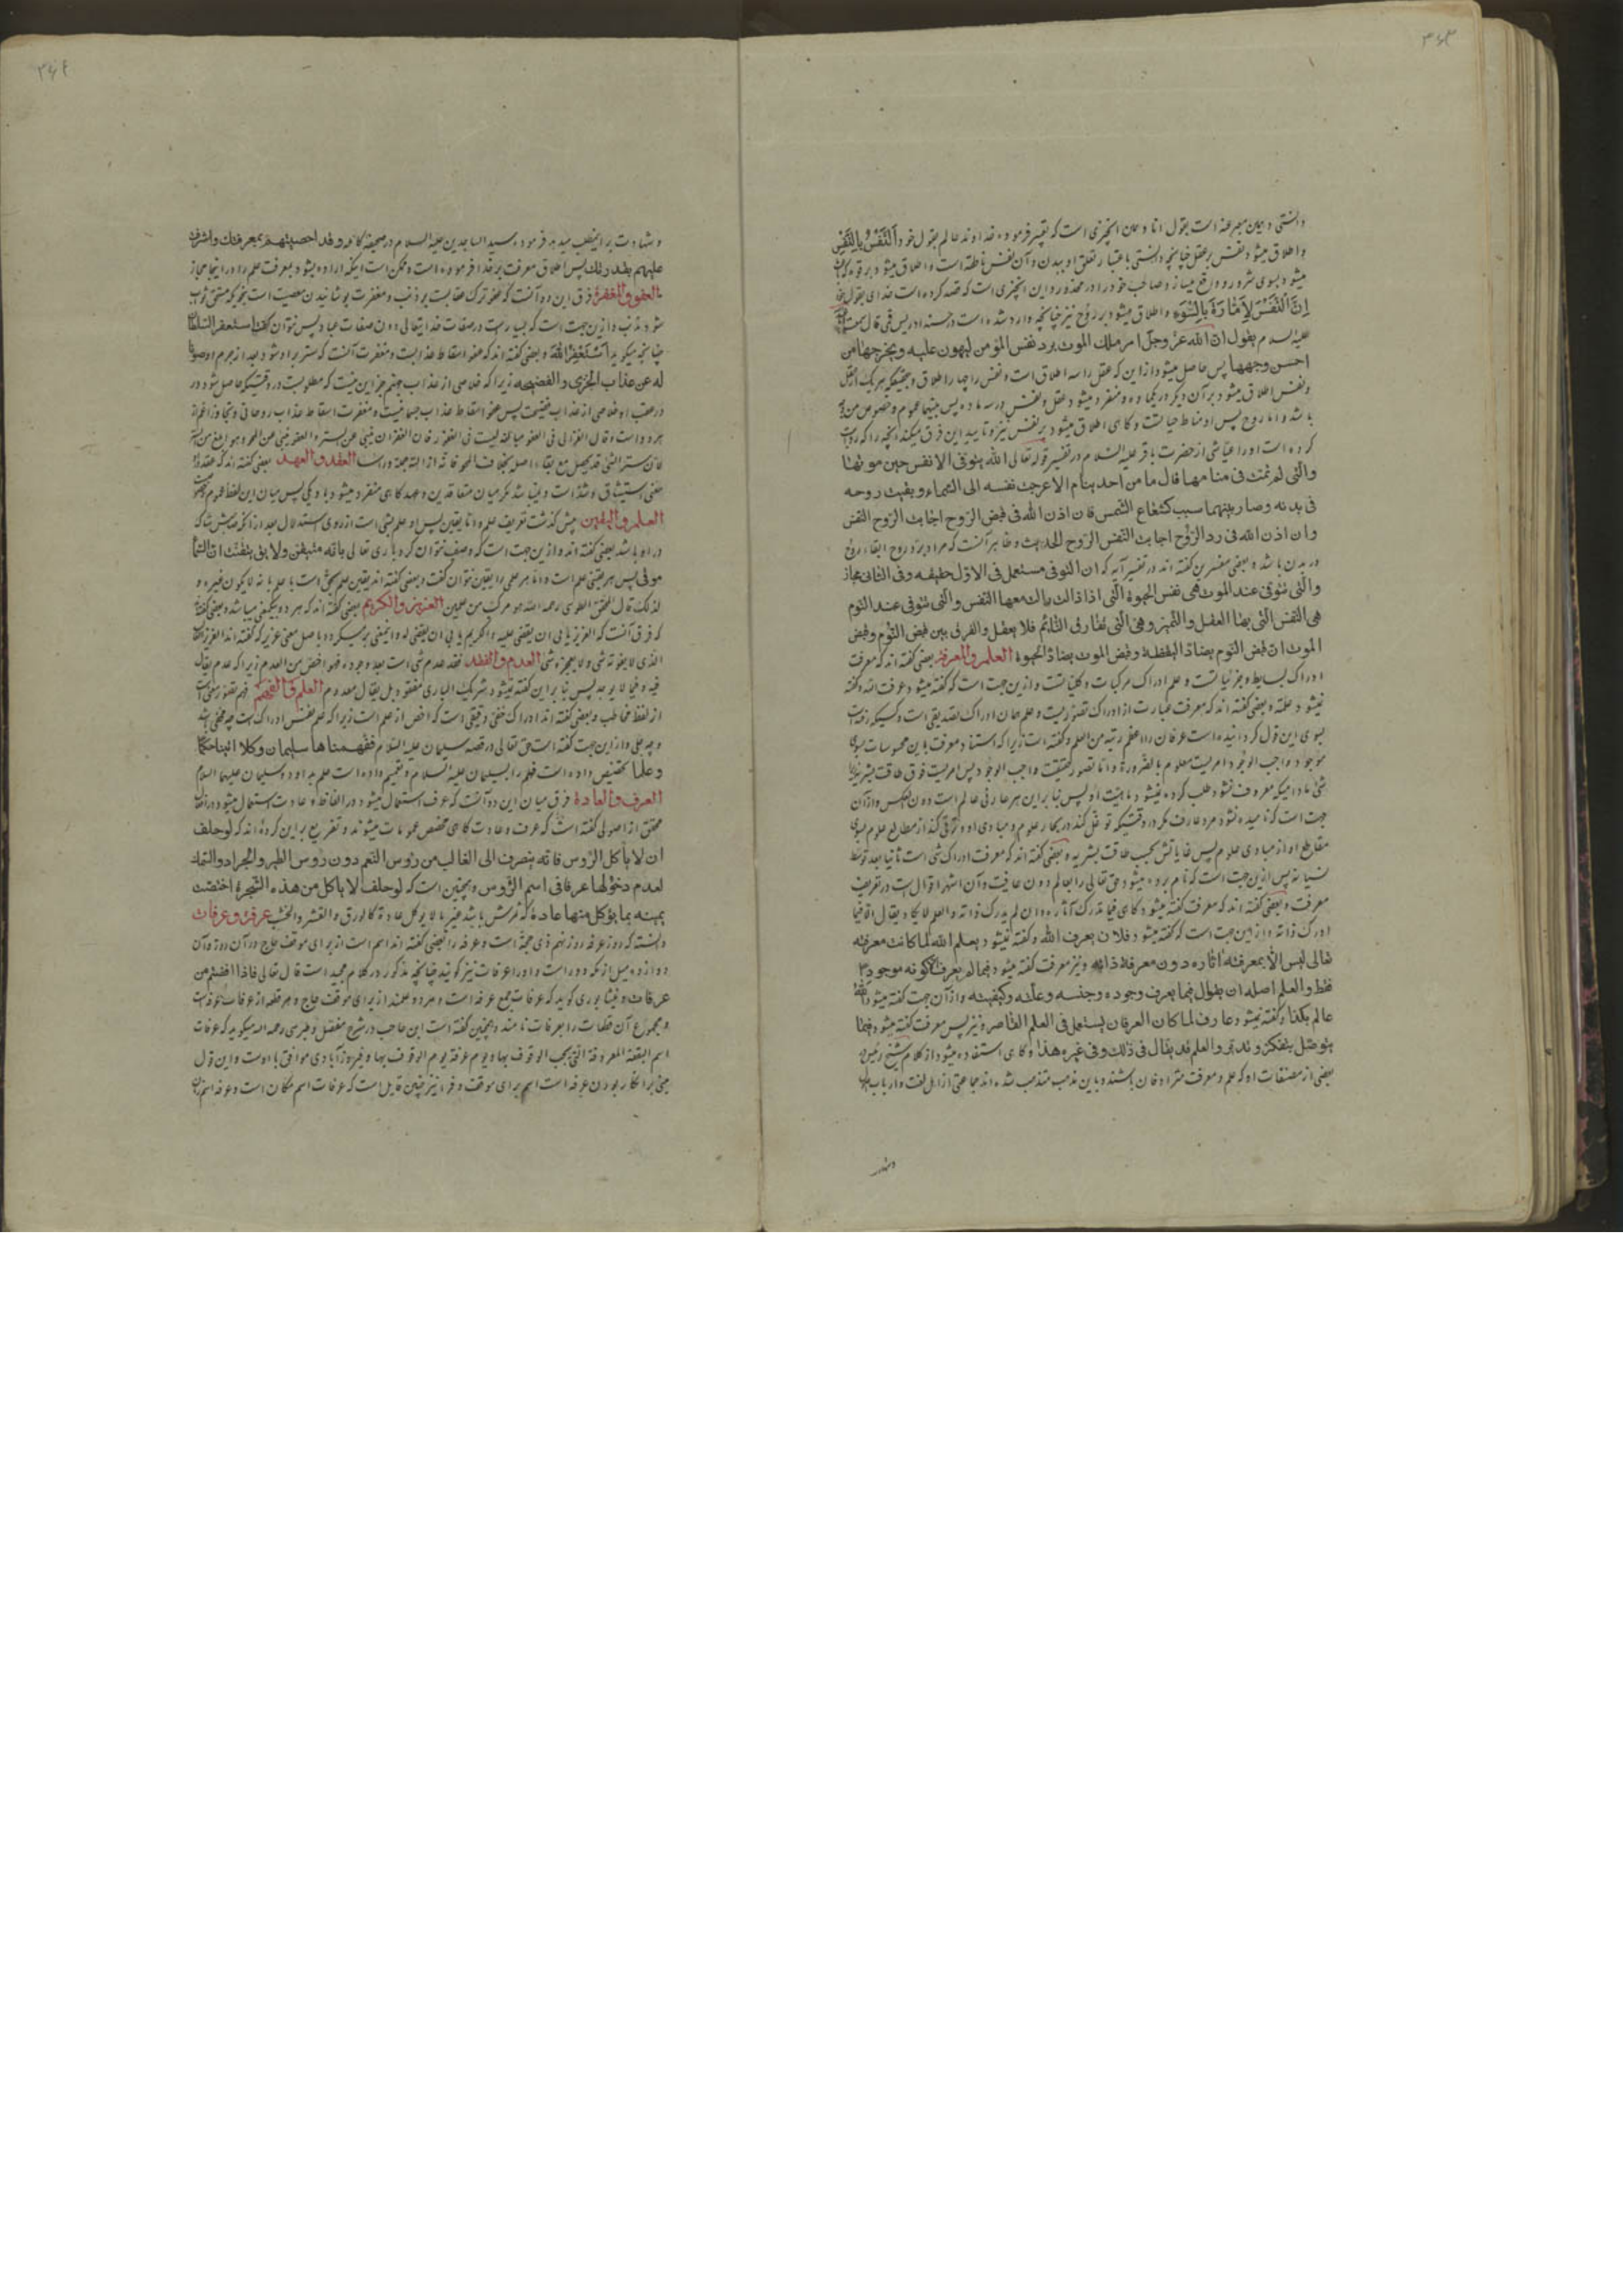 ۳۶۳
دانستی و همین معبر عنه است بقول انا و همان انچیزی است که تعبیر فرموده خداوند عالم بقول خود النفس بالنفس
و اطلاق میشود نفس بر عقل چنانچه دانستی باعتبار تعلق او ببدن و آن نفس ناطقه است و اطلاق میشود بر قوه که
میشود بسوی شرور و واقع میسازد صاحب خود را در محذور و این انچیزی است که قصد کرده است خدای بقول
ان النفس لامارة بالسوء و اطلاق میشود بر روح نیز چنانچه وارد شده است در حسنه ادریس قمی قال سمعت
علیه السلام یقول ان الله عز وجل امر ملک الموت برد نفس المؤمن لیهون علیه و یخرجها من
احسن وجهها پس حاصل میشود از این که عقل را سه اطلاق است و نفس را چهار اطلاق و
و نفس اطلاق میشود بر آن دیگر در یکماده و منفرد میشود عقل و نفس در سه ماده پس بینهما عموم و خصوص من وجه
باشد و اما روح پس او مناط حیاتست و گاهی اطلاق میشود بر نفس نیز و تایید این فرق میکند انچه را که روایت
کرده است او را عیاشی از حضرت باقر علیه السلام در تفسیر قوله تعالی الله یتوفی الانفس حین موتها
والتی لم تمت فی منامها قال ما من احد ینام الا عرجت نفسه الی السماء و بقیت روحه
فی بدنه و صار بینهما سبب کشعاع الشمس فان اذن الله فی قبض الروح اجابت الروح النفس
و ان اذن الله فی رد الروح اجابت النفس الروح الحدیث و ظاهر آنست که مراد برد روح ابقاء روح
در بدن باشد و بعضی مفسرین گفته اند در تفسیر آیه که ان التوفی مستعمل فی الاول حقیقه و فی الثانی مجاز
والتی تتوفی عند الموت هی نفس الحیوة التی اذا زالت زال معها النفس والتی تتوفی عند النوم
هی النفس التی بها العقل والتمیز و هی التی تفارق النائم فلا یعقل والفرق بین قبض النوم و قبض
الموت ان قبض النوم یضاد الیقظة و قبض الموت یضاد الحیوة العلم والمعرفة بعضی گفته اند که معرفت
ادراک بسایط و جزئیاتست و علم ادراک مرکبات و کلیاتست و ازین جهت است که گفته میشود عرفت الله و گفته
نمیشود علمته و بعضی گفته اند که معرفت عبارت از ادراک تصوریست و علم همان ادراک تصدیقی است و کسیکه رفته است
بسوی این قول گردانیده است عرفان را اعظم رتبه من العلم و گفته است زیرا که استناد معرفت باین محسوسات بسوی
موجود واجب الوجود امریست معلوم بالضرورة و اما تصور حقیقت واجب الوجود پس امریست فوق طاقت بشریه زیرا
شئ مادامیکه معروف نشود طلب کرده نمیشود ماهیت او پس بنا براین هر عارفی عالم است دون العکس و ازآن
جهت است که نامیده نشود مرد عارف مگر در وقتیکه توغل کند در بحار علوم و مبادی او و ترقی کند از مطالع علوم بسوی
مقاطع او از مبادی علوم پس غایاتش بحسب طاقت بشریه و بعضی گفته اند که معرفت ادراک شئ است ثانیا بعد توسط
نسیانه پس ازین جهت است که نام برده میشود حق تعالی را بعالم دون عارف و آن اشهر اقوال است در تعریف
معرفت و بعضی گفته اند که معرفت گفته میشود گاهی فیما تدرک آثاره و ان لم یدرک ذاته والعلم لا یکاد یقال الا فیما
ادرک ذاته و ازین جهت است که گفته میشود فلان یعرف الله و گفته نمیشود یعلم الله لما کانت معرفته
تعالی لیس الا بمعرفة اثاره دون معرفة ذاته و نیز معرفت گفته میشود فیما لم یعرف الا کونه موجودا
فقط والعلم اصله ان یقال فیما یعرف وجوده و جنسه و علته و کیفیته و ازآن جهت گفته میشود الله
عالم بکذا و گفته نمیشود عارف لما کان العرفان یستعمل فی العلم القاصر و نیز پس معرفت گفته میشود فیما
یتوصل بتفکر و تدبر والعلم قد یقال فی ذلک و فی غیره هذا و گاهی استفاده میشود از کلام شیخ رئیس در
بعضی از مصنفات او که علم و معرفت مترادفان باشند و باین مذهب متذهب شده اند جماعتی از اهل لغت و ارباب
۳۶۴
و شهادت بر اینمطلب میدهد فرموده سید الساجدین علیه السلام در صحیفه کامله و قد احصیتهم بمعرفتک و اشرفت
علیهم بقدرتک پس اطلاق معرفت بر خدا فرموده است و ممکن است اینکه اراده بشود بمعرفت علم را در اینجا مجاز
العفو والمغفرة فرق این دو آنست که عفو ترک عقابست بر ذنب و مغفرت پوشانیدن معصیت است بنحویکه مستحق ثواب
شود مذنب و ازین جهت است که بسیار است در صفات خدایتعالی دون صفات عباد پس نتوان گفت استغفر السلطان
چنانچه میگوید استغفر الله و بعضی گفته اند که عفو اسقاط عذابست و مغفرت آنست که ستر بر او شود بعد از جرم او صونا
له عن عذاب الخزی والفضیحه زیرا که خلاصی از عذاب جهنم جز این نیست که مطلوبست در وقتیکه حاصل شود در
در عقب او خلاصی از عذاب فضیحت پس عفو اسقاط عذاب جسمانیست و مغفرت اسقاط عذاب روحانی و تجاوز اعم از
هر دو است و قال الغزالی فی العفو مبالغة لیست فی الغفور فان الغفران ینبئ عن الستر والعفو ینبئ عن المحو و هو ابلغ من الستر
لان ستر الشئ قد یحصل مع بقاء اصله بخلاف المحو فانه ازالته جملة و رأسا العقد والعهد بعضی گفته اند که عقد در او
معنی استیثاق و شد است و نمیباشد مگر میان متعاقدین و عهد گاهی منفرد میشود باو یکی پس میان این لفظ عموم و خصوص
العلم والیقین پیش گذشت تعریف علم و اما یقین پس او علم بشئ است از روی استدلال بعد از آنکه صاحبش شاک
در او باشد بعضی گفته اند و ازین جهت است که وصف نتوان کرد باری تعالی بانه متیقن و لا یقال تیقنت ان السماء
فوقی پس هر یقینی علم است و اما هر علمی را یقین نتوان گفت و بعضی گفته اند یقین علم بحق است با علم بانه لا یکون غیره و
لذلک قال المحقق الطوسی رحمه الله هو مرکب من علمین العزیز والکریم بعضی گفته اند که هر دو بیکمعنی میباشد و بعضی گفته
که فرق آنست که العزیز یابی ان یقضی علیه والکریم یابی ان یقتضی له و اینمعنی برمیگردد باصل معنی عزیز که گفته اند العزیز الغالب
الذی لا یفوته شئ و لا یعجزه شئ العدم والفقد فقد عدم شئ است بعد وجوده فهو اخص من العدم زیرا که عدم یقال
فیه و فیما لا یوجد پس بنا براین گفته نمیشود شریک الباری مفقود بل یقال معدوم العلم والفهم فهم تصور معنی است
از لفظ مخاطب و بعضی گفته اند ادراک خفی دقیقی است که اخص از علم است زیرا که علم نفس ادراک است چه خفی باشد
و چه جلی و ازاین جهت گفته است حق تعالی در قصه سلیمان علیه السلام ففهمناها سلیمان وکلا اتینا حکما
وعلما تخصیص داده است فهم را بسلیمان علیه السلام و تعمیم داده است علم بداود و سلیمان علیهما السلام
العرف والعادة فرق میان این دو آنست که عرف استعمال میشود در الفاظ و عادت استعمال میشود در افعال
محقق از اصولی گفته است که عرف و عادت گاهی مخصص عمومات میشوند و تفریع براین کرده اند که لو حلف
ان لا یاکل الرؤس فانه ینصرف الی الغالب من رؤس النعم دون رؤس الطیر والجراد والسمک
لعدم دخولها عرفا فی اسم الرؤس و همچنین است که لو حلف لا یاکل من هذه الشجرة اختصت
یمینه بما یؤکل منها عادة که ثمرش باشد غیر ما لا یؤکل عادة کالورق والقشر والخشب عرفة و عرفات
دانسته که روز عرفه روز نهم ذی حجة است و عرفه را بعضی گفته اند اسم است از برای موقف حاج در آن روز و آن
دوازده میل از مکه دور است و او را عرفات نیز گویند چنانچه مذکور در کلام مجید است قال تعالی فاذا افضتم من
عرفات و نیشابوری گوید که عرفات جمع عرفه است و هر دو علمند از برای موقف حاج و هر قطعه از عرفات عرفه است
و مجموع آن قطعات را عرفات نامند و همچنین گفته است ابن حاجب در شرح مفصل و طبرسی رحمه الله میگوید که عرفات
اسم البقعة المعروفة التی یجب الوقوف بها و یوم عرفة یوم الوقوف بها و فیروزآبادی موافق با اوست و این قول
مبنی بر انکار بودن عرفه است اسم برای موقف و فرا نیز چنین قایل است که عرفات اسم مکان است و عرفه اسم زمان